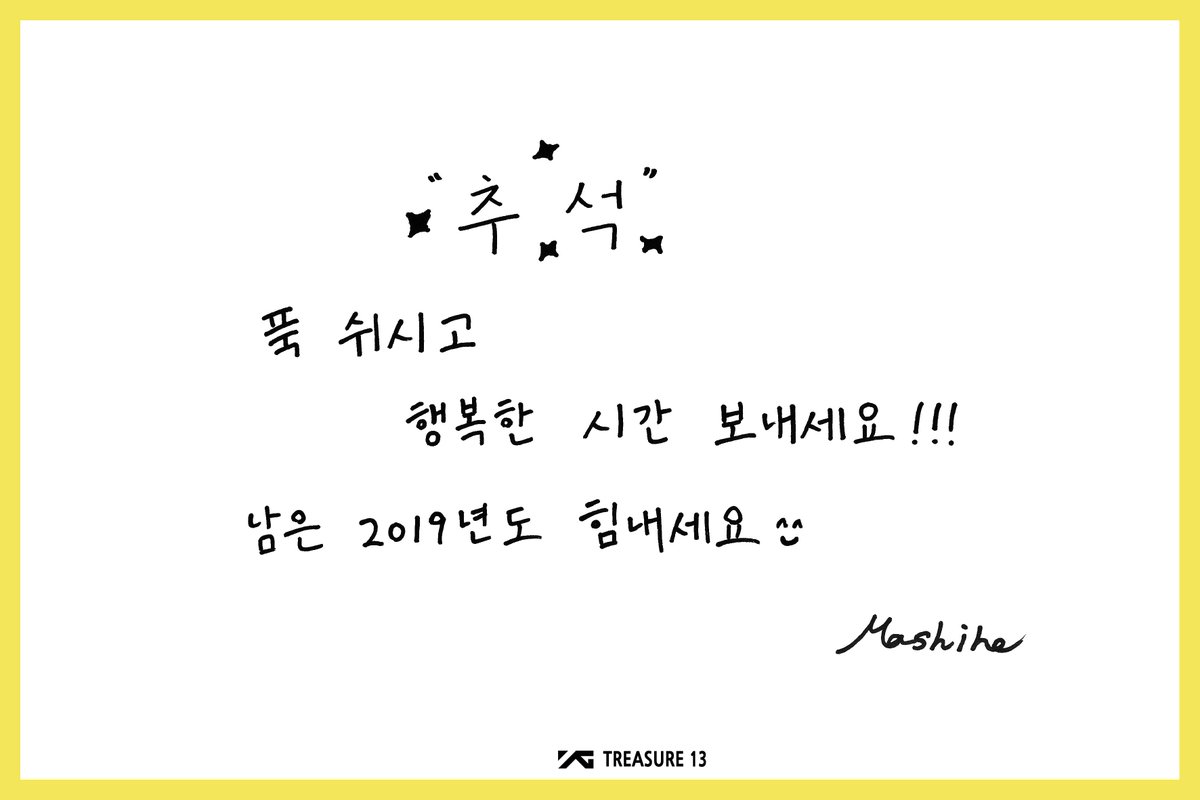 "추석"
푹 쉬시고
행복한 시간 보내세요!!!
남은 2019년도 힘내세요^^
Mashiho
YG TREASURE 13